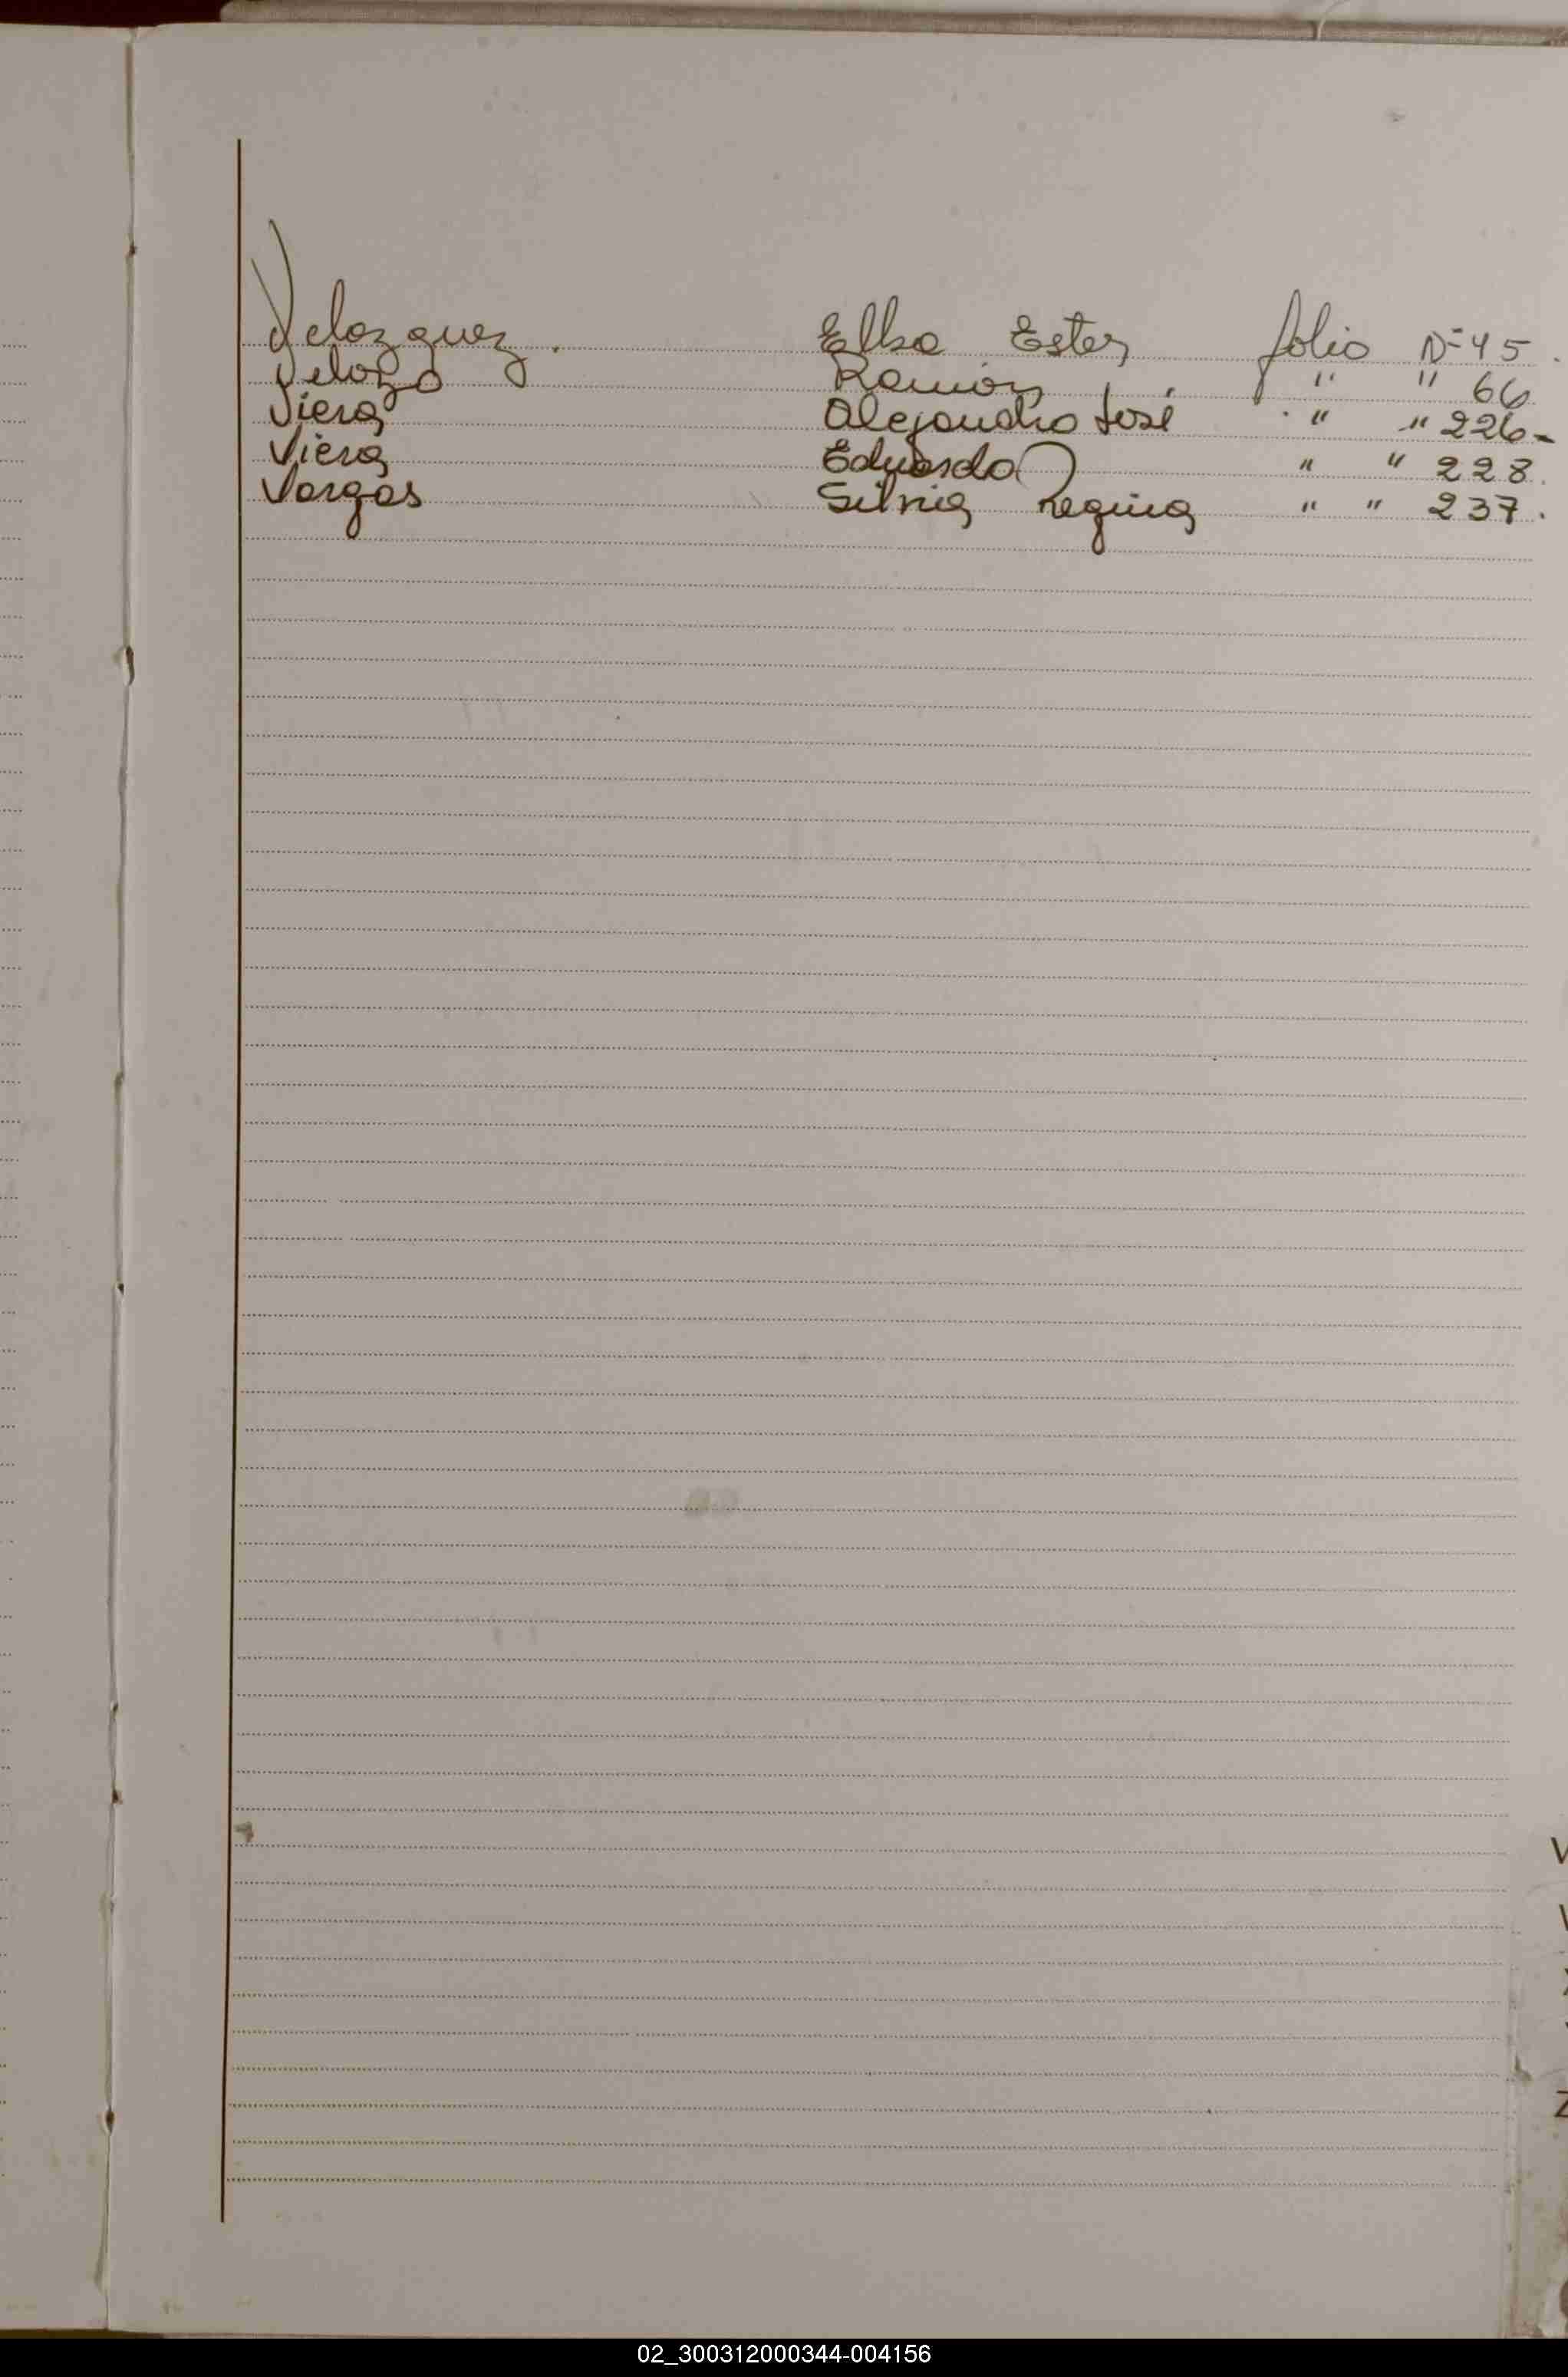 Velozquez. Elba Ester folio Nº 45.
Velozo Ramón " " 66
Viera Alejandro José " " 226-
Viera Eduardo " " 228.
Vargas Silvia Regina " " 237.
V
Z
02_300312000344-004156